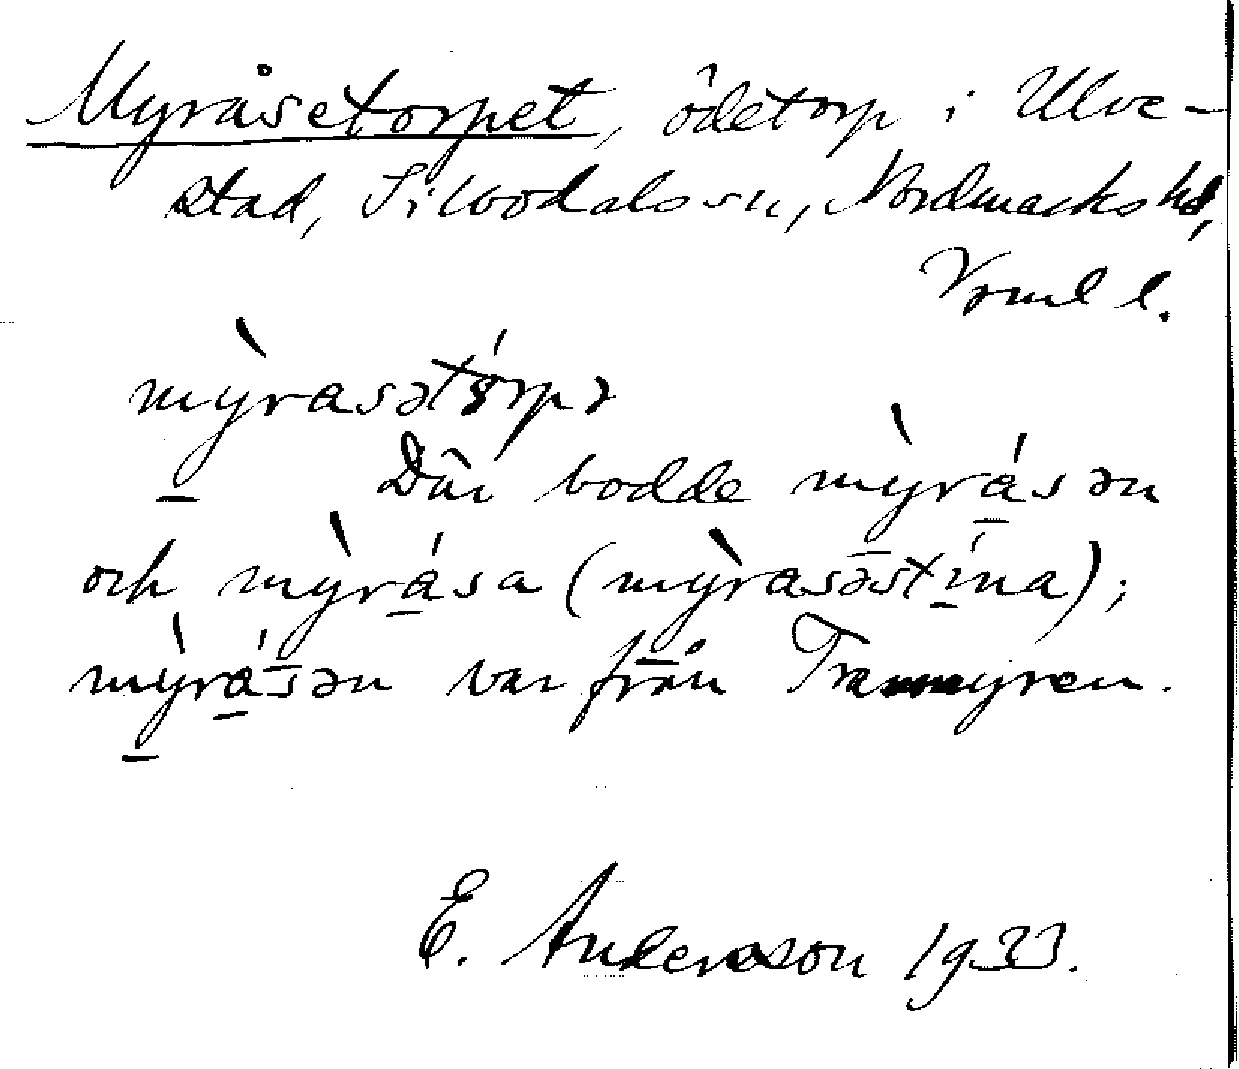 Myråsetorpet, ödetorp i Ulve-
stad, Silbodals sn, Nordmarks hd,
Vrml l.
mỳrasətǿrpə
Där bodde mỳrásən
och mỳrása (mỳrasəstína);
mỳrásən var från Tranmyren.
E. Andersson 1933.